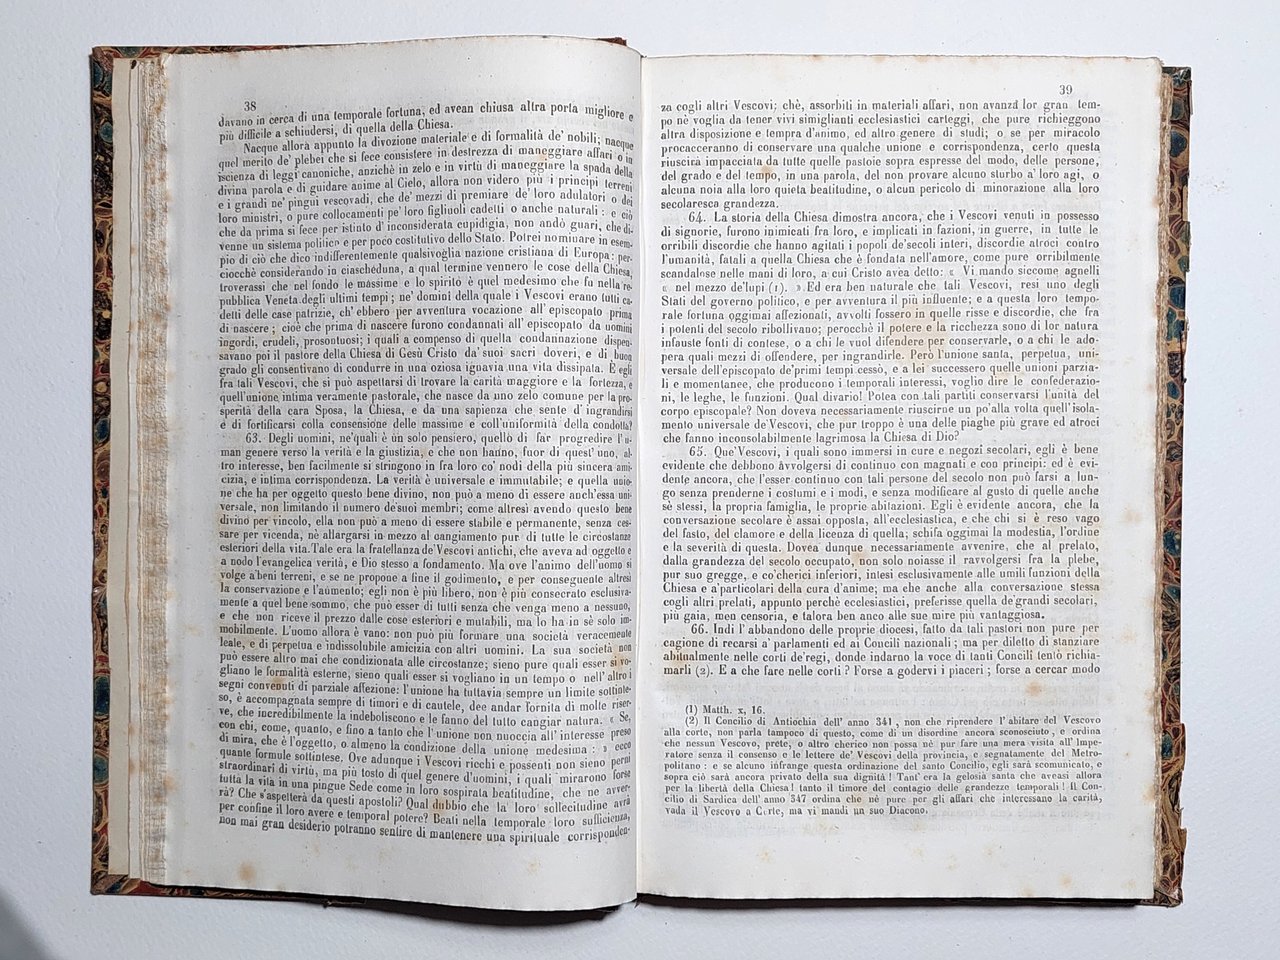 38
davano in cerca di una temporale fortuna, ed avean chiusa altra porta migliore e
più difficile a schiudersi, di quella della Chiesa.
Nacque allora appunto la divozione materiale e di formalità de' nobili; nacque
quel merito de' plebei che si fece consistere in destrezza di maneggiare affari o in
iscienza di leggi canoniche, anzichè in zelo e in virtù di maneggiare la spada della
divina parola e di guidare anime al Cielo, allora non videro più i principi terreni
e i grandi ne' pingui vescovadi, che de' mezzi di premiare de' loro adulatori o dei
loro ministri, o pure collocamenti pe' loro figliuoli cadetti o anche naturali: e ciò
che da prima si fece per istinto d' inconsiderata cupidigia, non andò guari, che di-
venne un sistema politico e per poco costitutivo dello Stato. Potrei nominare in esem-
pio di ciò che dico indifferentemente qualsivoglia nazione cristiana di Europa: per-
ciocchè considerando in ciascheduna, a qual termine vennero le cose della Chiesa,
troverassi che nel fondo le massime e lo spirito è quel medesimo che fu nella re-
pubblica Veneta degli ultimi tempi; ne' domini della quale i Vescovi erano tutti ca-
detti delle case patrizie, ch' ebbero per avventura vocazione all' episcopato prima
di nascere; cioè che prima di nascere furono condannati all' episcopato da uomini
ingordi, crudeli, prosontuosi; i quali a compenso di quella condannazione dispen-
savano poi il pastore della Chiesa di Gesù Cristo da' suoi sacri doveri, e di buon
grado gli consentivano di condurre in una oziosa ignavia una vita dissipata. E egli
fra tali Vescovi, che si può aspettarsi di trovare la carità maggiore e la fortezza, e
quell'unione intima veramente pastorale, che nasce da uno zelo comune per la pro-
sperità della cara Sposa, la Chiesa, e da una sapienza che sente d' ingrandirsi
e di fortificarsi colla consensione delle massime e coll'uniformità della condotta?
63. Degli uomini, ne'quali è un solo pensiero, quello di far progredire l'u-
man genere verso la verità e la giustizia, e che non hanno, fuor di quest' uno, al-
tro interesse, ben facilmente si stringono in fra loro co' nodi della più sincera ami-
cizia, e intima corrispondenza. La verità è universale e immutabile; e quella unio-
ne che ha per oggetto questo bene divino, non può a meno di essere anch'essa uni-
versale, non limitando il numero de'suoi membri; come altresì avendo questo bene
divino per vincolo, ella non può a meno di essere stabile e permanente, senza ces-
sare per vicenda, nè allargarsi in mezzo al cangiamento pur di tutte le circostanze
esteriori della vita. Tale era la fratellanza de'Vescovi antichi, che aveva ad oggetto e
a nodo l'evangelica verità, e Dio stesso a fondamento. Ma ove l'animo dell'uomo si
volge a'beni terreni, e se ne propone a fine il godimento, e per conseguente altresì
la conservazione e l'aumento; egli non è più libero, non è più consecrato esclusiva-
mente a quel bene sommo, che può esser di tutti senza che venga meno a nessuno,
e che non riceve il prezzo dalle cose esteriori e mutabili, ma lo ha in sè solo im-
mobilmente. L'uomo allora è vano: non può più formare una società veracemente
leale, e di perpetua e indissolubile amicizia con altri uomini. La sua società non
può essere altro mai che condizionata alle circostanze; sieno pure quali esser si vo-
gliano le formalità esterne, sieno quali esser si vogliano in un tempo o nell' altro i
segni convenuti di parziale affezione: l'unione ha tuttavia sempre un limite sottinte-
so, è accompagnata sempre di timori e di cautele, dee andar fornita di molte riser-
ve, che incredibilmente la indeboliscono e le fanno del tutto cangiar natura. « Se,
con chi, come, quanto, e fino a tanto che l'unione non nuoccia all' interesse preso
di mira, che è l'oggetto, o almeno la condizione della unione medesima: » ecco
quante formule sottintese. Ove adunque i Vescovi ricchi e possenti non sieno per
straordinari di virtù, ma più tosto di quel genere d'uomini, i quali mirarono forse
tutta la vita in una pingue Sede come in loro sospirata beatitudine, che ne avver-
rà? Che s'aspetterà da questi apostoli? Qual dubbio che la loro sollecitudine avrà
per confine il loro avere e temporal potere? Beati nella temporale loro sufficienza,
non mai gran desiderio potranno sentire di mantenere una spirituale corrisponden-
39
za cogli altri Vescovi; chè, assorbiti in materiali affari, non avanza lor gran tem-
po nè voglia da tener vivi simiglianti ecclesiastici carteggi, che pure richieggono
altra disposizione e tempra d'animo, ed altro genere di studi; o se per miracolo
procacceranno di conservare una qualche unione e corrispondenza, certo questa
riuscirà impacciata da tutte quelle pastoie sopra espresse del modo, delle persone,
del grado e del tempo, in una parola, del non provare alcuno sturbo a' loro agi, o
alcuna noia alla loro quieta beatitudine, o alcun pericolo di minorazione alla loro
secolaresca grandezza.
64. La storia della Chiesa dimostra ancora, che i Vescovi venuti in possesso
di signorie, furono inimicati fra loro, e implicati in fazioni, in guerre, in tutte le
orribili discordie che hanno agitati i popoli de'secoli interi, discordie atroci contro
l'umanità, fatali a quella Chiesa che è fondata nell'amore, come pure orribilmente
scandalose nelle mani di loro, a cui Cristo avea detto: « Vi mando siccome agnelli
« nel mezzo de'lupi (1). » Ed era ben naturale che tali Vescovi, resi uno degli
Stati del governo politico, e per avventura il più influente; e a questa loro tempo-
rale fortuna oggimai affezionati, avvolti fossero in quelle risse e discordie, che fra
i potenti del secolo ribollivano; perocchè il potere e la ricchezza sono di lor natura
infauste fonti di contese, o a chi le vuol difendere per conservarle, o a chi le ado-
pera quali mezzi di offendere, per ingrandirle. Però l'unione santa, perpetua, uni-
versale dell'episcopato de'primi tempi cessò, e a lei successero quelle unioni parzia-
li e momentanee, che producono i temporali interessi, voglio dire le confederazio-
ni, le leghe, le funzioni. Qual divario! Potea con tali partiti conservarsi l'unità del
corpo episcopale? Non doveva necessariamente riuscirne un po'alla volta quell'isola-
mento universale de'Vescovi, che pur troppo è una delle piaghe più grave ed atroci
che fanno inconsolabilmente lagrimosa la Chiesa di Dio?
65. Que'Vescovi, i quali sono immersi in cure e negozi secolari, egli è bene
evidente che debbono avvolgersi di continuo con magnati e con principi: ed è evi-
dente ancora, che l'esser continuo con tali persone del secolo non può farsi a lun-
go senza prenderne i costumi e i modi, e senza modificare al gusto di quelle anche
sè stessi, la propria famiglia, le proprie abitazioni. Egli è evidente ancora, che la
conversazione secolare è assai opposta, all'ecclesiastica, e che chi si è reso vago
del fasto, del clamore e della licenza di quella; schifa oggimai la modestia, l'ordine
e la severità di questa. Dovea dunque necessariamente avvenire, che al prelato,
dalla grandezza del secolo occupato, non solo noiasse il ravvolgersi fra la plebe,
pur suo gregge, e co'cherici inferiori, intesi esclusivamente alle umili funzioni della
Chiesa e a'particolari della cura d'anime; ma che anche alla conversazione stessa
cogli altri prelati, appunto perchè ecclesiastici, preferisse quella de'grandi secolari,
più gaia, men censoria, e talora ben anco alle sue mire più vantaggiosa.
66. Indi l' abbandono delle proprie diocesi, fatto da tali pastori non pure per
cagione di recarsi a' parlamenti ed ai Concili nazionali; ma per diletto di stanziare
abitualmente nelle corti de'regi, donde indarno la voce di tanti Concili tentò richia-
marli (2). E a che fare nelle corti? Forse a godervi i piaceri; forse a cercar modo
(1) Matth. x, 16.
(2) Il Concilio di Antiochia dell' anno 341, non che riprendere l'abitare del Vescovo
alla corte, non parla tampoco di questo, come di un disordine ancora sconosciuto, e ordina
che nessun Vescovo, prete, o altro cherico non possa nè pur fare una mera visita all' Impe-
ratore senza il consenso e le lettere de' Vescovi della provincia, e segnatamente del Metro-
politano: e se alcuno infrange questa ordinazione del santo Concilio, egli sarà scomunicato, e
sopra ciò sarà ancora privato della sua dignità! Tant' era la gelosia santa che aveasi allora
per la libertà della Chiesa! tanto il timore del contagio delle grandezze temporali! Il Con-
cilio di Sardica dell' anno 347 ordina che nè pure per gli affari che interessano la carità,
vada il Vescovo a Corte, ma vi mandi un suo Diacono.